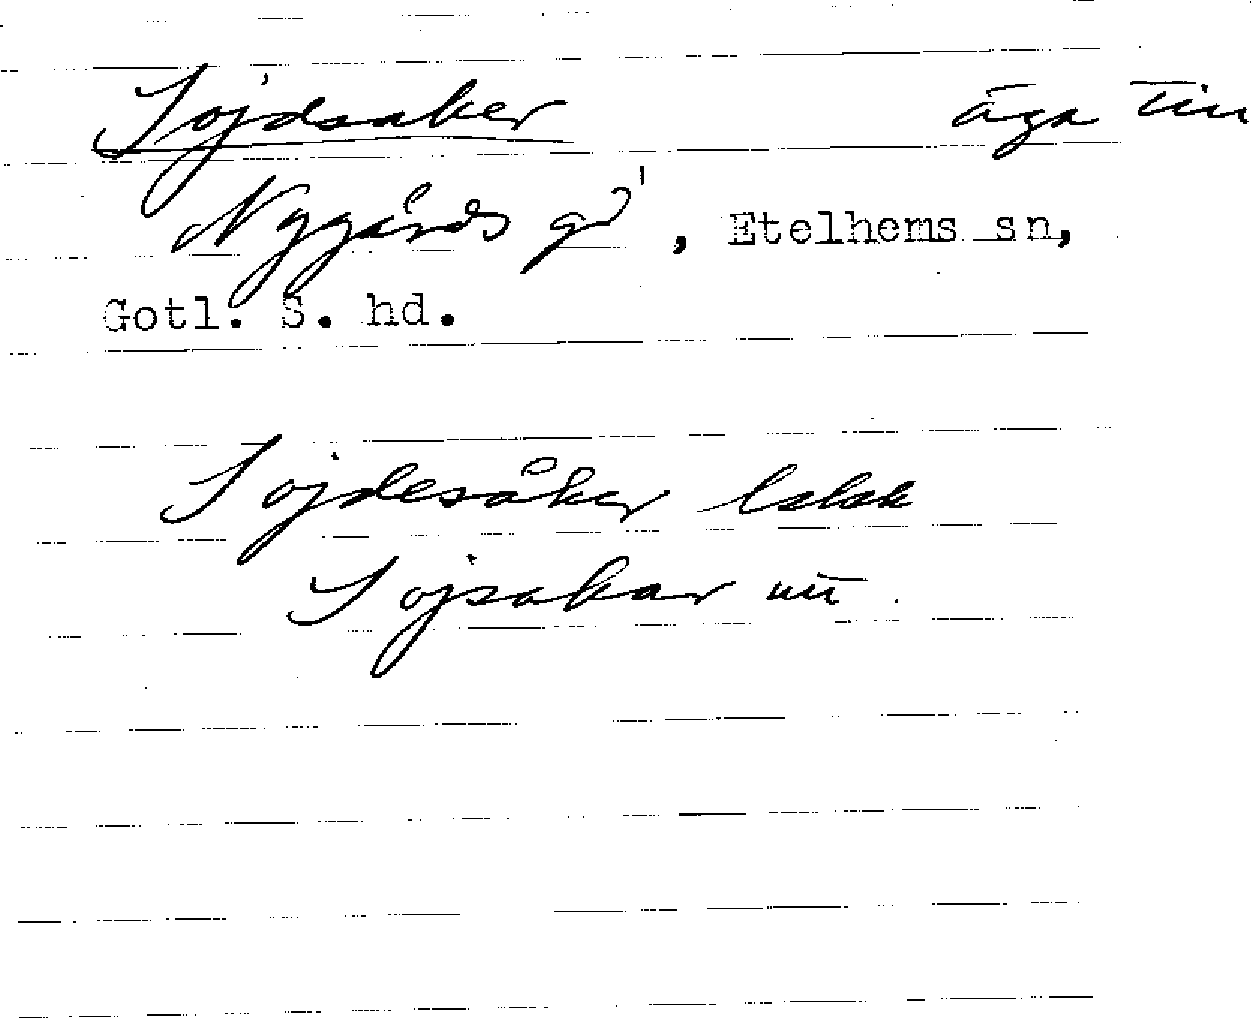 Sojdsaker äga till
Nygårds gd, Etelhems sn,
Gotl. S. hd.
Sojdesåker
Sojsakar utt.